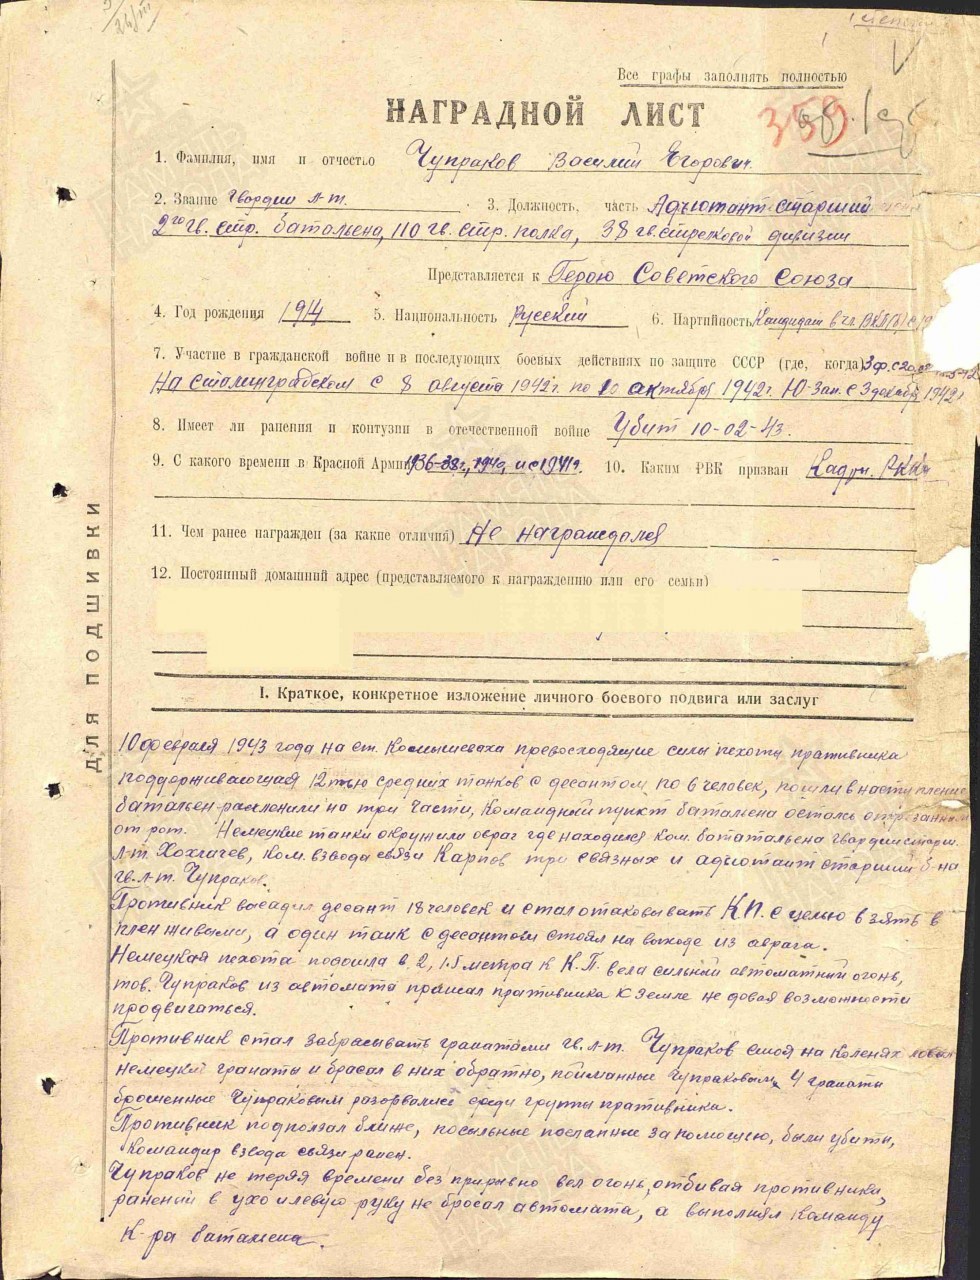 Все графы заполнять полностью
НАГРАДНОЙ ЛИСТ
359
1. Фамилия, имя и отчество Чупраков Василий Егорович.
2. Звание Гвардии л-т. 3. Должность, часть Адъютант старший
2го гв. стр. батальена, 110 гв. стр. полка, 38 гв. стрелковой дивизии
Представляется к Герою Советского Союза
4. Год рождения 1914 5. Национальность Русский 6. Партийность Кандидат в чл. ВКП(б) с
7. Участие в гражданской войне и в последующих боевых действиях по защите СССР (где, когда)
На сталинградском с 8 августа 1942г. по 10 октября 1942г. Ю-Зап. с 3 декабря 1942г.
8. Имеет ли ранения и контузии в отечественной войне Убит 10-02-43.
9. С какого времени в Красной Армии 1936-38г., 1940, и с 1941г. 10. Каким РВК призван Кадры. РККА
11. Чем ранее награжден (за какие отличия) Не награждался
12. Постоянный домашний адрес (представляемого к награждению или его семьи)
ДЛЯ ПОДШИВКИ
I. Краткое, конкретное изложение личного боевого подвига или заслуг
10 февраля 1943 года на ст. Комышеваха превосходящие силы пехоты пративника
поддерживающая 12тью средних танков с десантом по 6 человек, пошли в наступление
батальен расчленили на три части, Командный пункт батальена остался отрезанным
от рот. Немецкие танки окружили овраг где находился ком. батальена гвардии старш.
л-т. Хохлачев, ком. взвода связи Карпов три связных и адъютант старший б-на
гв. л-т. Чупраков.
Противник высадил десант 18 человек и стал отаковывать К.П. с целью взять в
плен живыми, а один танк с десантом стоял на выходе из оврага.
Немецкая пехота подошла в 2, 15 метра к К.П. вела сильный автоматний огонь,
тов. Чупраков из автомата прижал пративника к земле не довая возможности
продвигаться.
Противник стал забрасывать гранатами гв. л-т. Чупраков стоя на коленях ловил
немецкий гранаты и брасал в них обратно, пойманные Чупраковым 4 гранаты
брошенные Чупраковым разорвались среди группы пративника.
Противник подползал ближе, посыльные посланные за помощью, были убиты,
командир взвода связи ранен.
Чупраков не теряя времени без прирывно вел огонь, отбивая противника,
раненый в ухо и левую руку не бросал автомата, а выполнял команду
К-ра батальена.